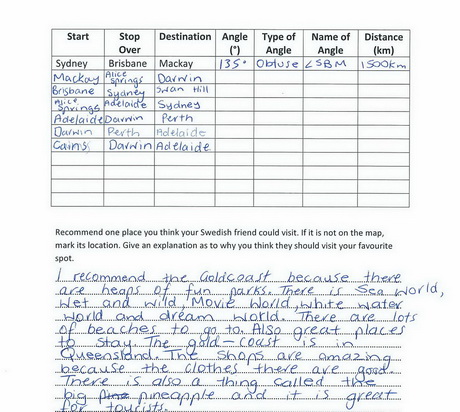 Start Stop Over Destination Angle (°) Type of Angle Name of Angle Distance (km)
Sydney Brisbane Mackay 135° Obtuse ∠SBM 1500km
Mackay Alice Springs Darwin
Brisbane Sydney Swan Hill
Alice Springs Adelaide Sydney
Adelaide Darwin Perth
Darwin Perth Adelaide
Cairns Darwin Adelaide
Recommend one place you think your Swedish friend could visit. If it is not on the map,
mark its location. Give an explanation as to why you think they should visit your favourite
spot.
I recommend the Goldcoast because there
are heaps of fun parks. There is Sea world,
Wet and wild, Movie World, white water
world and dream world. There are lots
of beaches to go to. Also great places
to stay. The gold-coast is in
Queensland. The shops are amazing
because the clothes there are good.
There is also a thing called the
big pineapple and it is great
for tourists.